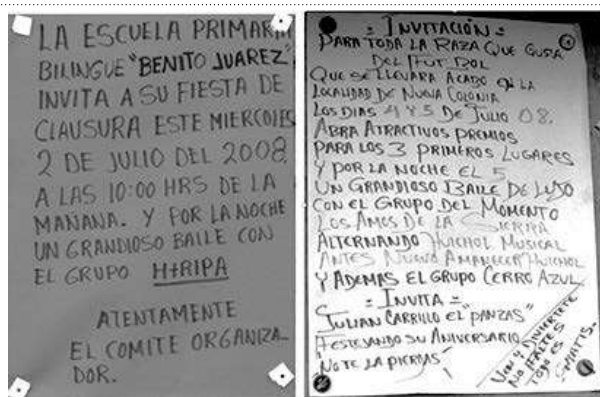 LA ESCUELA PRIMARIA
BILINGUE "BENITO JUAREZ"
INVITA A SU FIESTA DE
CLAUSURA ESTE MIERCOLES
2 DE JULIO DEL 2008.
A LAS 10:00 HRS DE LA
MAÑANA. Y POR LA NOCHE
UN GRANDIOSO BAILE CON
EL GRUPO H+RIPA
ATENTAMENTE
EL COMITE ORGANIZA-
DOR.
= INVITACIÓN =
PARA TODA LA RAZA QUE GUSTA
DEL FUT BOL
QUE SE LLEVARA ACABO EN LA
LOCALIDAD DE NUEVA COLONIA
LOS DIAS 4 Y 5 DE JULIO 08.
ABRA ATRACTIVOS PREMIOS
PARA LOS 3 PRIMEROS LUGARES
Y POR LA NOCHE EL 5
UN GRANDIOSO BAILE DE LUJO
CON EL GRUPO DEL MOMENTO
LOS AMOS DE LA SIERRA
ALTERNANDO HUICHOL MUSICAL
ANTES NUEVO AMANECER HUICHOL
Y ADEMAS EL GRUPO CERRO AZUL.
= INVITA =
JULIAN CARRILLO EL "PANZAS"
FESTEJANDO SU ANIVERSARIO
NO TE LA PIERDAS
VEN Y DIVIERTETE
NO FALTES
TODO ES
GRATIS.